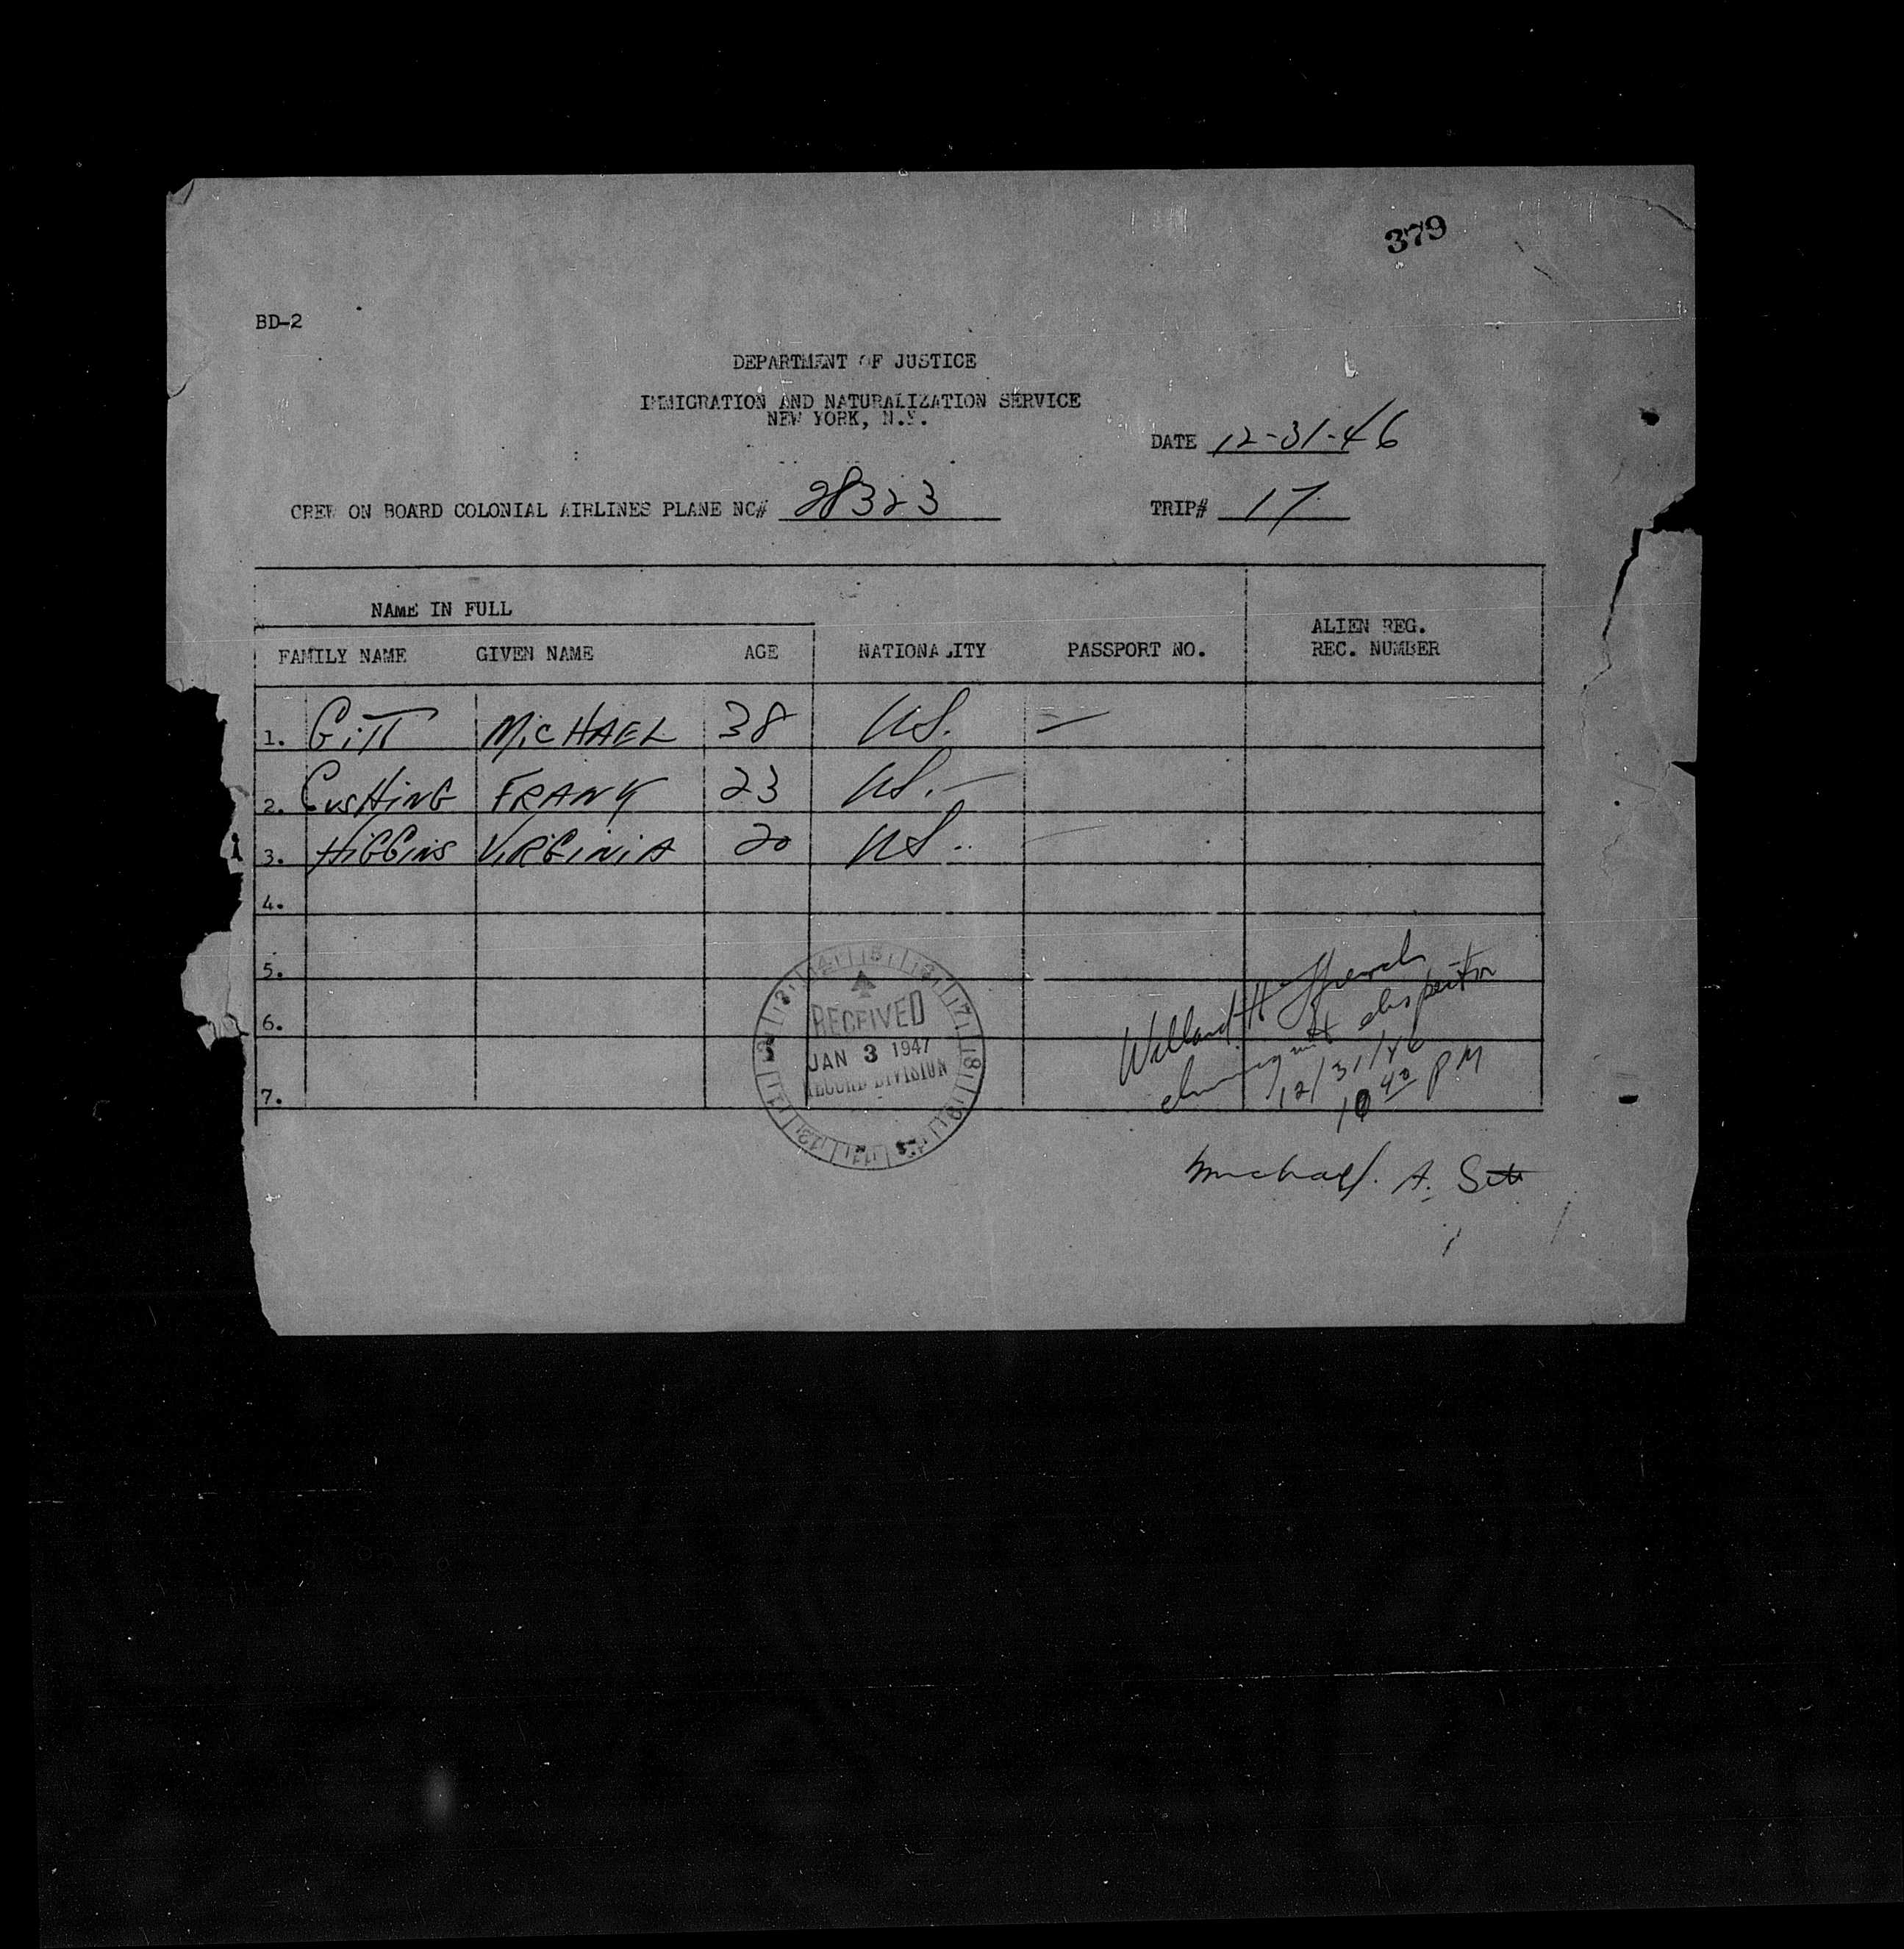 379
BD-2
DEPARTMENT OF JUSTICE
IMMIGRATION AND NATURALIZATION SERVICE
NEW YORK, N.Y.
DATE 12-31-46
CREW ON BOARD COLONIAL AIRLINES PLANE NC# 28323 TRIP# 17
NAME IN FULL
FAMILY NAME GIVEN NAME AGE NATIONALITY PASSPORT NO. ALIEN REG. REC. NUMBER
1. GITT MICHAEL 38 US. —
2. CUSHING FRANK 23 US. —
3. HIGGINS VIRGINIA 20 US.
4.
5.
6.
7.
RECEIVED
JAN 3 1947
RECORD DIVISION
Willard H
Inspector
12/31/46
10 40 PM
Michael A. Gitt